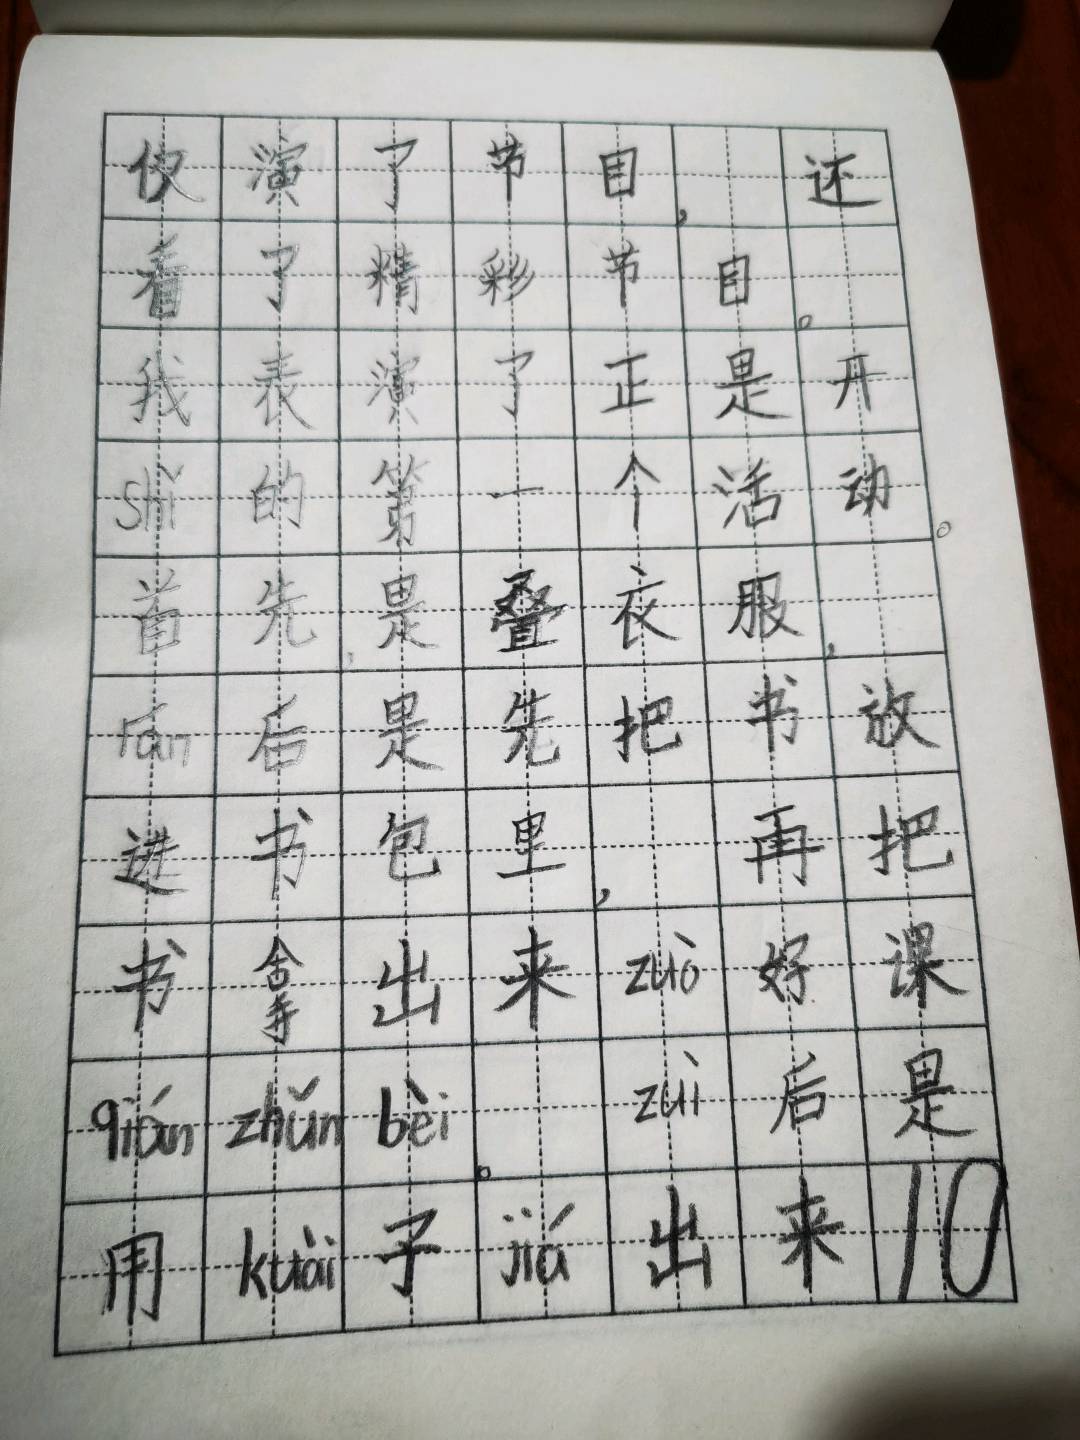 仅演了节目,还
看了精彩节目。
我表演了正是开
shǐ的第一个活动。
首先,是叠衣服,
rán后是先把书放
进书包里,再把
书拿出来zuò好课
qián zhǔn bèi。zuì后是
用kuài子jiá出来10